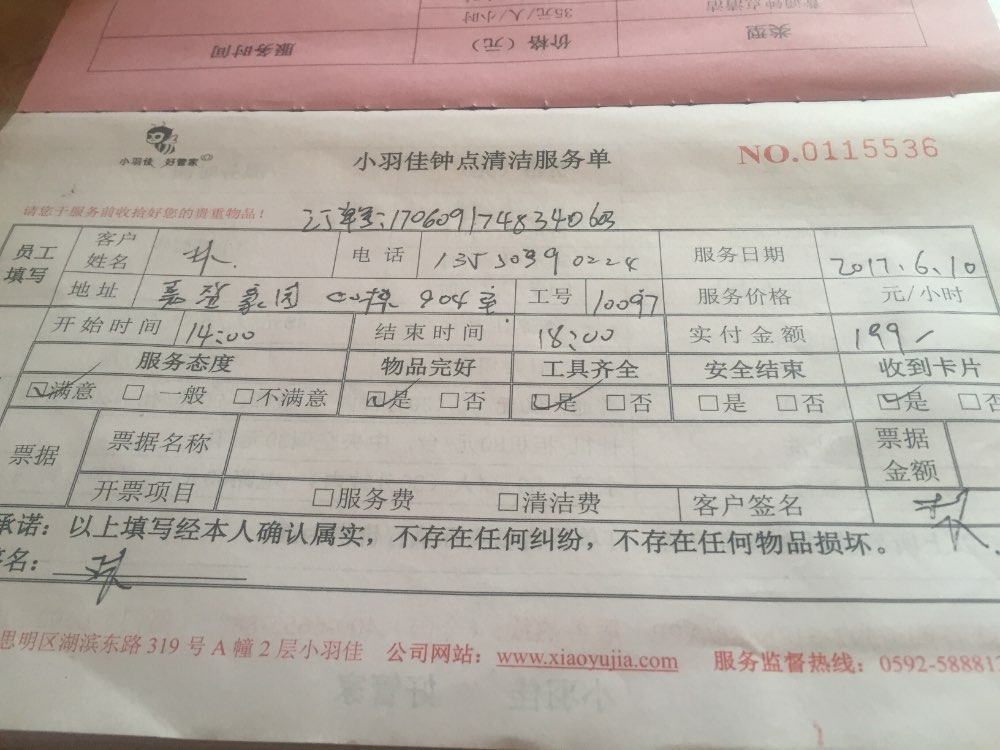 普通钟点清洁 35元/人/小时
类型 价格（元） 服务时间
小羽佳 好管家
小羽佳钟点清洁服务单
NO.0115536
请您于服务前收拾好您的贵重物品！
订单号:170609174834060
员工填写 客户姓名 林 电话 13550390224 服务日期 2017.6.10
地址 904室 工号 10097 服务价格 元/小时
开始时间 14:00 结束时间 18:00 实付金额 199
服务态度 物品完好 工具齐全 安全结束 收到卡片
☑满意 □一般 □不满意 ☑是 □否 ☑是 □否 □是 □否 ☑是 □否
票据 票据名称 票据金额
开票项目 □服务费 □清洁费 客户签名 林
承诺：以上填写经本人确认属实，不存在任何纠纷，不存在任何物品损坏。
签名：林
思明区湖滨东路319号A幢2层小羽佳 公司网站：www.xiaoyujia.com 服务监督热线：0592-588817